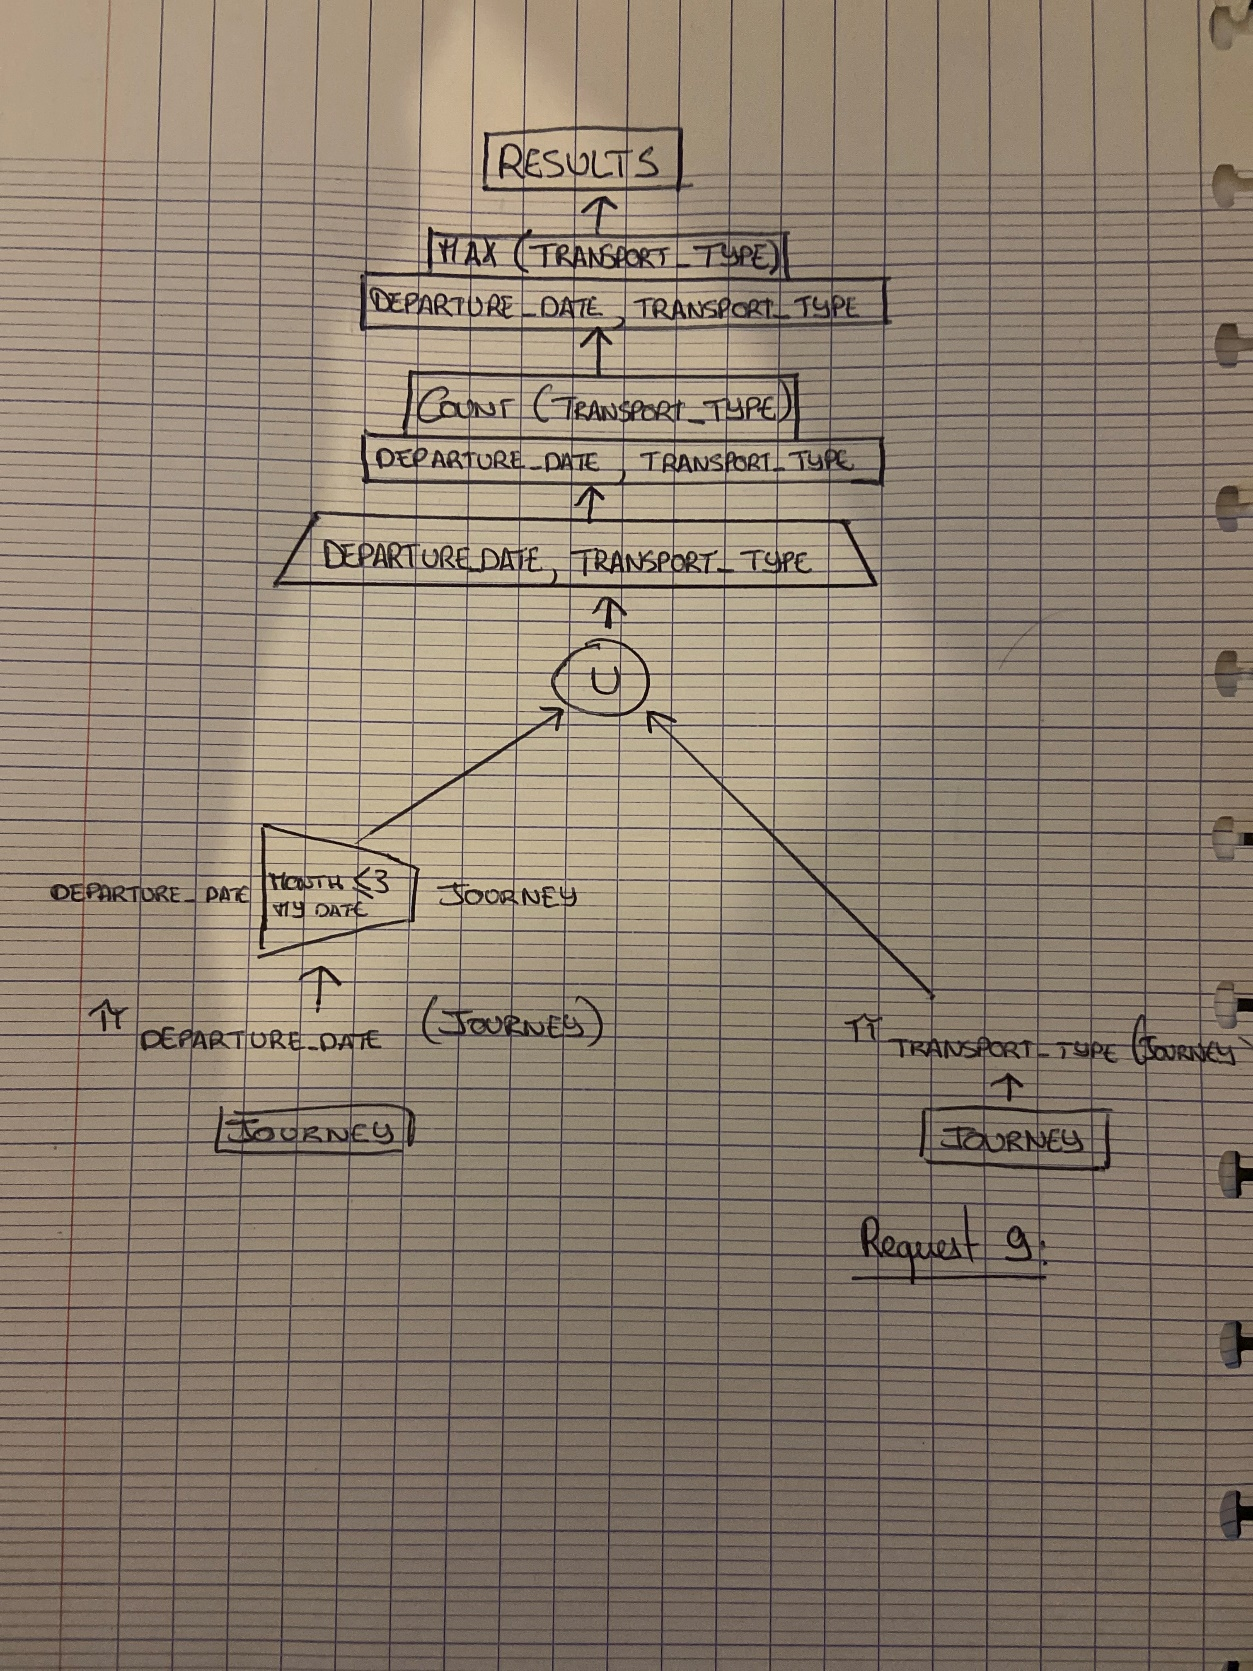 RESULTS
MAX (TRANSPORT_TYPE)
DEPARTURE_DATE, TRANSPORT_TYPE
COUNT (TRANSPORT_TYPE)
DEPARTURE_DATE, TRANSPORT_TYPE
DEPARTURE_DATE, TRANSPORT_TYPE
U
DEPARTURE_DATE MONTH ≤3 JOURNEY
MY DATE
π DEPARTURE_DATE (JOURNEY)
π TRANSPORT_TYPE (JOURNEY)
JOURNEY
JOURNEY
Request 9: